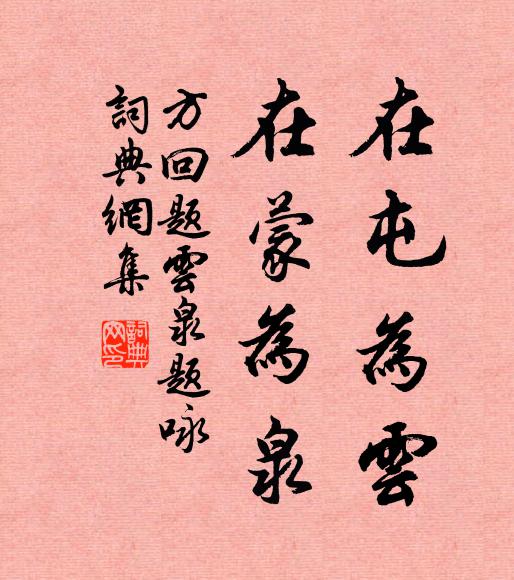 在屯為雲
在蒙為泉
方回题雲泉题咏
詞典網集
詞典网印